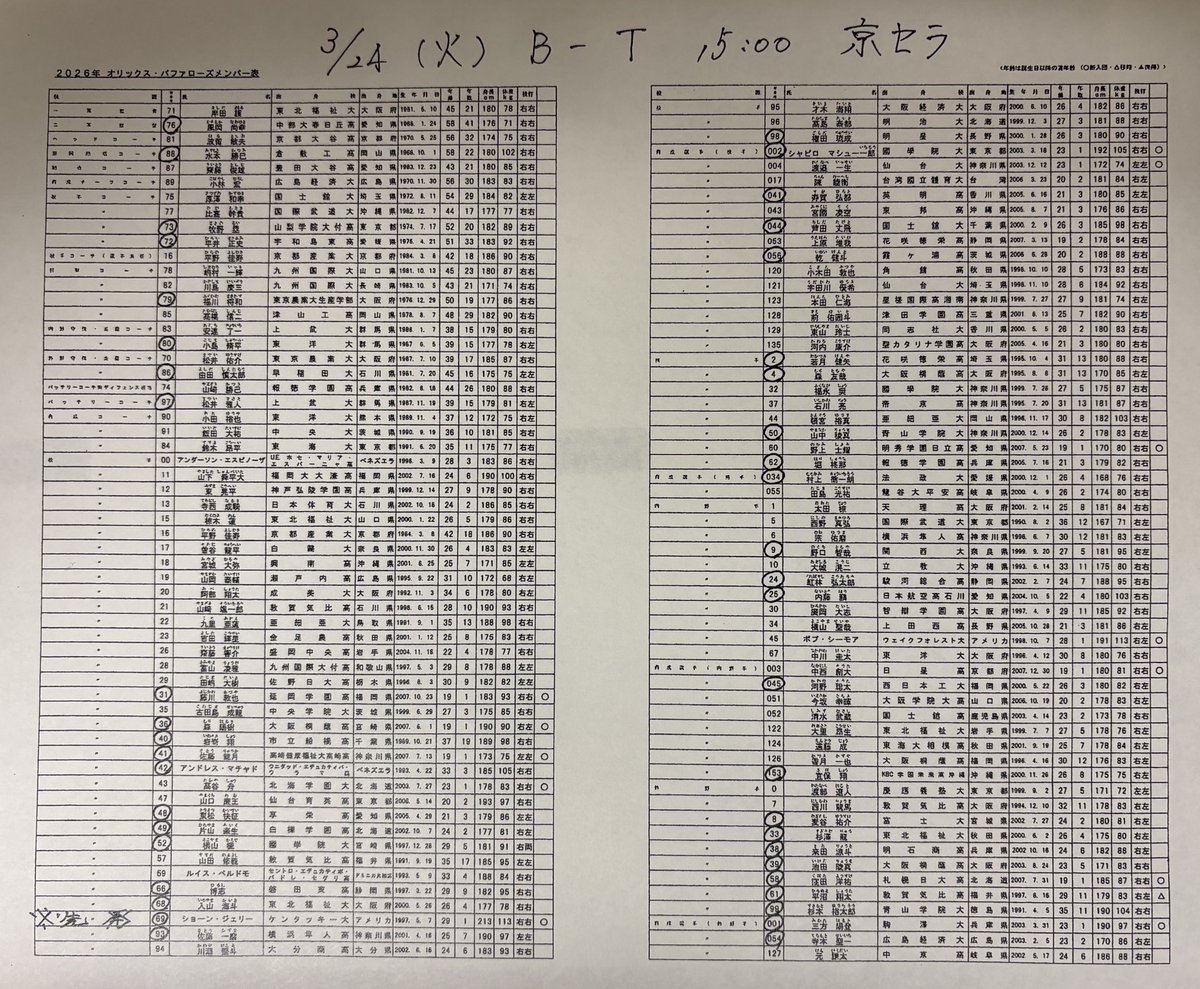 3/24 (火) B - T 15:00 京セラ
2026年 オリックス・バファローズメンバー表
(年齢は誕生日以降の満年齢 (○新入団・△移籍・▲復帰))
71 岸田 護 東北福祉大 大阪府 1981. 5.10 45 21 180 78 右右
76 風岡 尚幸 中部大春日丘高 愛知県 1968. 1.24 58 41 176 71 右右
81 波留 敏夫 京都大谷高 京都府 1970. 5.25 56 32 174 75 右右
88 水本 勝巳 倉敷工高 岡山県 1968.10. 1 58 22 180 102 右右
87 齋藤 俊雄 豊田大谷高 愛知県 1983.12.23 43 21 180 83 右右
89 小林 宏 広島経済大 広島県 1970.11.30 56 30 183 83 右右
75 厚澤 和幸 国士舘大 埼玉県 1972. 8.11 54 29 184 82 左左
77 比嘉 幹貴 国際武道大 沖縄県 1982.12. 7 44 17 177 77 右右
73 牧野 塁 山梨学院大付高 東京都 1974. 7.17 52 20 182 89 右右
72 平井 正史 宇和島東高 愛媛県 1975. 4.21 51 33 183 92 右右
16 平野 佳寿 京都産業大 京都府 1984. 3. 8 42 18 186 90 右右
78 嶋村 一輝 九州国際大 山口県 1981.10.13 45 23 180 87 右右
82 川島 慶三 九州国際大 長崎県 1983.10. 5 43 21 174 77 右右
79 福川 将和 東京農業大生産学部 大阪府 1976.12.29 50 19 177 86 右右
85 高橋 信二 津山工高 岡山県 1978. 8. 7 48 29 182 90 右右
83 安達 了一 上武大 群馬県 1988. 1. 7 38 15 179 78 右右
80 小島 脩平 東洋大 群馬県 1987. 6. 5 39 15 177 80 右左
70 松井 佑介 東京農業大 大阪府 1987. 7.10 39 17 185 87 右右
86 由田 慎太郎 早稲田大 石川県 1981. 7.20 45 16 175 75 左左
バッテリーコーチ兼ディフェンス担当 74 山崎 勝己 報徳学園高 兵庫県 1982. 8.16 44 26 180 88 右右
バッテリーコーチ 97 松井 雅人 上武大 群馬県 1987.11.19 39 15 179 81 右左
90 小田 裕也 東洋大 熊本県 1989.11. 4 37 12 172 75 右左
91 飯田 大祐 中央大 茨城県 1990. 9.19 36 10 181 85 右右
84 鈴木 昂平 東海大 東京都 1991. 6.20 35 11 175 77 右右
00 アンダーソン・エスピノーザ UEホセ・マリア・エスパーニャ高 ベネズエラ 1998. 3. 9 28 3 183 86 右右
11 山下 舜平大 福岡大大濠高 福岡県 2002. 7.16 24 6 190 100 右右
12 東 晃平 神戸弘陵学園高 兵庫県 1999.12.14 27 9 178 90 右右
13 寺西 成騎 日本体育大 石川県 2002.10.16 24 2 186 85 右右
15 椋木 蓮 東北福祉大 山口県 2000. 1.22 26 5 179 86 右右
16 平野 佳寿 京都産業大 京都府 1984. 3. 8 42 18 186 90 右右
17 曽谷 龍平 白鷗大 奈良県 2000.11.30 26 4 183 83 左左
18 宮城 大弥 興南高 沖縄県 2001. 8.25 25 7 171 85 左左
19 山岡 泰輔 瀬戸内高 広島県 1995. 9.22 31 10 172 68 右左
20 阿部 翔太 成美大 大阪府 1992.11. 3 34 6 178 80 右左
21 山﨑 颯一郎 敦賀気比高 石川県 1998. 6.15 28 10 190 93 右右
22 九里 亜蓮 亜細亜大 鳥取県 1991. 9. 1 35 13 188 98 右右
23 吉田 輝星 金足農高 秋田県 2001. 1.12 25 8 175 83 右右
26 齋藤 響介 盛岡中央高 岩手県 2004.11.18 22 4 178 77 右右
28 富山 凌雅 九州国際大付高 和歌山県 1997. 5. 3 29 8 178 88 左左
29 田嶋 大樹 佐野日大高 栃木県 1996. 8. 3 30 9 182 82 左左
31 藤川 敦也 延岡学園高 福岡県 2007.10.23 19 1 183 93 右右 ○
35 古田島 成龍 中央学院大 茨城県 1999. 6.29 27 3 175 85 右右
36 森 陽樹 大阪桐蔭高 宮崎県 2007. 6. 1 19 1 190 90 右左 ○
40 岩嵜 翔 市立船橋高 千葉県 1989.10.21 37 19 189 98 右右
41 佐藤 龍月 高崎健康福祉大高崎高 神奈川県 2007. 7.13 19 1 173 75 左左 ○
42 アンドレス・マチャド ウニダッド・エデュカティバ・ウラマ高 ベネズエラ 1993. 4.22 33 3 185 105 右右
43 高谷 舟 北海学園大 北海道 2003. 7.27 23 1 178 83 右右 ○
47 山口 廉王 仙台育英高 東京都 2006. 5.14 20 2 193 97 右右
48 東松 快征 享栄高 愛知県 2005. 4.29 21 3 179 86 左左
49 片山 楽生 白樺学園高 北海道 2002.10. 7 24 2 177 81 右左
52 横山 楓 國學院大 宮崎県 1997.12.28 29 5 181 91 右両
57 山田 修義 敦賀気比高 福井県 1991. 9.19 35 17 185 95 左左
59 ルイス・ペルドモ セントロ・エデュカティボ・パドレ・セグリ高 ドミニカ共和国 1993. 5. 9 33 4 188 84 右右
66 博志 磐田東高 静岡県 1997. 3.22 29 9 182 95 右右
68 入山 海斗 東北福祉大 大阪府 2000. 5.26 26 4 177 78 右右
69 ショーン・ジェリー ケンタッキー大 アメリカ 1997. 5. 7 29 1 213 113 右右 ○
93 佐藤 一磨 横浜隼人高 神奈川県 2001. 4.16 25 7 190 97 左左
94 川瀬 堅斗 大分商高 大分県 2002. 6.18 24 6 183 93 右右
95 才木 海翔 大阪経済大 大阪府 2000. 6.10 26 4 182 86 右右
96 高島 泰都 明治大 北海道 1999.12. 3 27 3 181 88 右左
98 権田 琉成 明星大 長野県 2000. 1.28 26 3 180 90 右右
002 シャピロ マシュー一郎 國學院大 東京都 2003. 3.18 23 1 192 105 右右 ○
004 渡邉 一生 仙台大 神奈川県 2003.12.12 23 1 172 74 左左 ○
017 陳 睦衡 台湾國立體育大 台湾 2006. 3.23 20 2 181 84 右左
041 寿賀 弘都 英明高 香川県 2005. 6.16 21 3 180 85 左左
043 宮國 凌空 東邦高 沖縄県 2005. 8. 7 21 3 176 86 右右
044 芦田 丈飛 国士舘大 千葉県 2000. 2. 9 26 3 185 98 右右
053 上原 堆我 花咲徳栄高 静岡県 2007. 3.13 19 2 178 84 右右
056 乾 健斗 霞ヶ浦高 茨城県 2006. 6.28 20 2 188 84 右右
120 小木田 敦也 角館高 秋田県 1998.10.10 28 5 173 83 右右
121 宇田川 優希 仙台大 埼玉県 1998.11.10 28 6 184 92 右右
123 本田 仁海 星槎国際高湘南 神奈川県 1999. 7.27 27 9 181 74 右左
128 前 佑囲斗 津田学園高 三重県 2001. 8.13 25 7 182 88 右右
129 東山 玲士 同志社大 香川県 2000. 5. 5 26 2 180 83 右右
135 河内 康介 聖カタリナ学園高 大阪府 2005. 7. 8 21 3 180 80 右右
2 若月 健矢 花咲徳栄高 埼玉県 1995.10. 4 31 13 180 88 右右
4 森 友哉 大阪桐蔭高 大阪府 1995. 8. 8 31 13 170 85 右左
32 福永 奨 國學院大 神奈川県 1999. 7.28 27 5 175 87 右右
37 石川 亮 帝京高 神奈川県 1995. 7.20 31 13 181 87 右右
44 頓宮 裕真 亜細亜大 岡山県 1996.11.17 30 8 182 103 右右
50 山中 稜真 青山学院大 神奈川県 2000.12.14 26 2 178 83 右左
60 野上 士耀 明秀学園日立高 愛知県 2007. 5.23 19 1 170 80 右右 ○
62 堀 柊那 報徳学園高 兵庫県 2005. 7.16 21 3 179 82 右右
034 村上 喬一朗 法政大 愛媛県 2000.12. 1 26 4 168 76 右右
055 田島 光祐 龍谷大平安高 岐阜県 2000. 4. 9 26 2 174 80 右右
1 太田 椋 天理高 大阪府 2001. 2.14 25 8 181 84 右右
5 西野 真弘 国際武道大 東京都 1990. 8. 2 36 12 167 71 右左
6 宗 佑磨 横浜隼人高 神奈川県 1996. 6. 7 30 12 181 83 右左
9 野口 智哉 関西大 奈良県 1999. 9.20 27 5 181 95 右左
10 大城 滉二 立教大 沖縄県 1993. 6.14 33 11 175 80 右右
24 紅林 弘太郎 駿河総合高 静岡県 2002. 2. 7 24 7 188 95 右右
25 内藤 鵬 日本航空高石川 愛知県 2004.10. 5 22 4 180 103 右右
30 廣岡 大志 智辯学園高 大阪府 1997. 4. 9 29 11 185 92 右右
34 横山 聖哉 上田西高 長野県 2006. 21 3 181 86 右左
45 ボブ・シーモア ウェイクフォレスト大 アメリカ 1998.10. 7 28 1 191 113 右左 ○
67 中川 圭太 東洋大 大阪府 1996. 4.12 30 8 180 82 右右
003 中西 創大 日星高 京都府 2007.12.30 19 1 180 81 右左 ○
045 河野 聡太 西日本工大 福岡県 2000. 5.22 26 3 180 82 右左
051 今坂 幸暉 大阪学院大高 山口県 2006.10.19 20 2 178 83 右左
052 清水 武蔵 国士舘大 鹿児島県 2003. 4.14 23 2 173 78 右左
122 大里 昂生 東北福祉大 岩手県 1999. 7. 7 27 5 178 76 右左
124 遠藤 成 東海大相模高 秋田県 2001. 9.19 25 7 178 84 右左
126 香月 一也 大阪桐蔭高 福岡県 1996. 4.16 30 12 176 83 右左
153 宜保 翔 KBC学園未来高沖縄 沖縄県 2000.11.26 26 8 175 75 右左
0 渡部 遼人 慶應義塾大 東京都 1999. 9. 2 27 5 171 72 左左
7 西川 龍馬 敦賀気比高 大阪府 1994.12.10 32 11 178 83 右左
8 麦谷 祐介 富士大 宮城県 2002. 7.27 24 2 180 83 右左
33 杉澤 龍 東北福祉大 秋田県 2000. 6. 2 26 4 175 83 右左
38 来田 涼斗 明石商高 兵庫県 2002.10.16 24 6 180 88 右左
39 池田 陵真 大阪桐蔭高 大阪府 2003. 8.24 23 5 171 83 右右
58 窪田 洋祐 札幌日大高 北海道 2007. 7.31 19 1 185 87 右右 ○
61 平沼 翔太 敦賀気比高 福井県 1997. 8.16 29 11 179 83 右左 △
99 杉本 裕太郎 青山学院大 徳島県 1991. 4. 5 35 11 190 104 右右
001 三方 陽登 駒澤大 兵庫県 2003. 3.31 23 1 190 97 右右 ○
054 寺本 聖一 広島経済大 広島県 2003. 2. 5 23 2 170 86 右左
127 元 謙太 中京高 岐阜県 2002. 5.17 24 6 186 88 右右